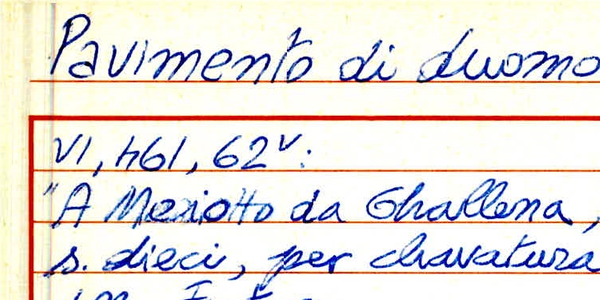 Pavimento di duomo
VI, 461, 62v:
"A Mariotto da Ghallena,
s. dieci, per chavatura